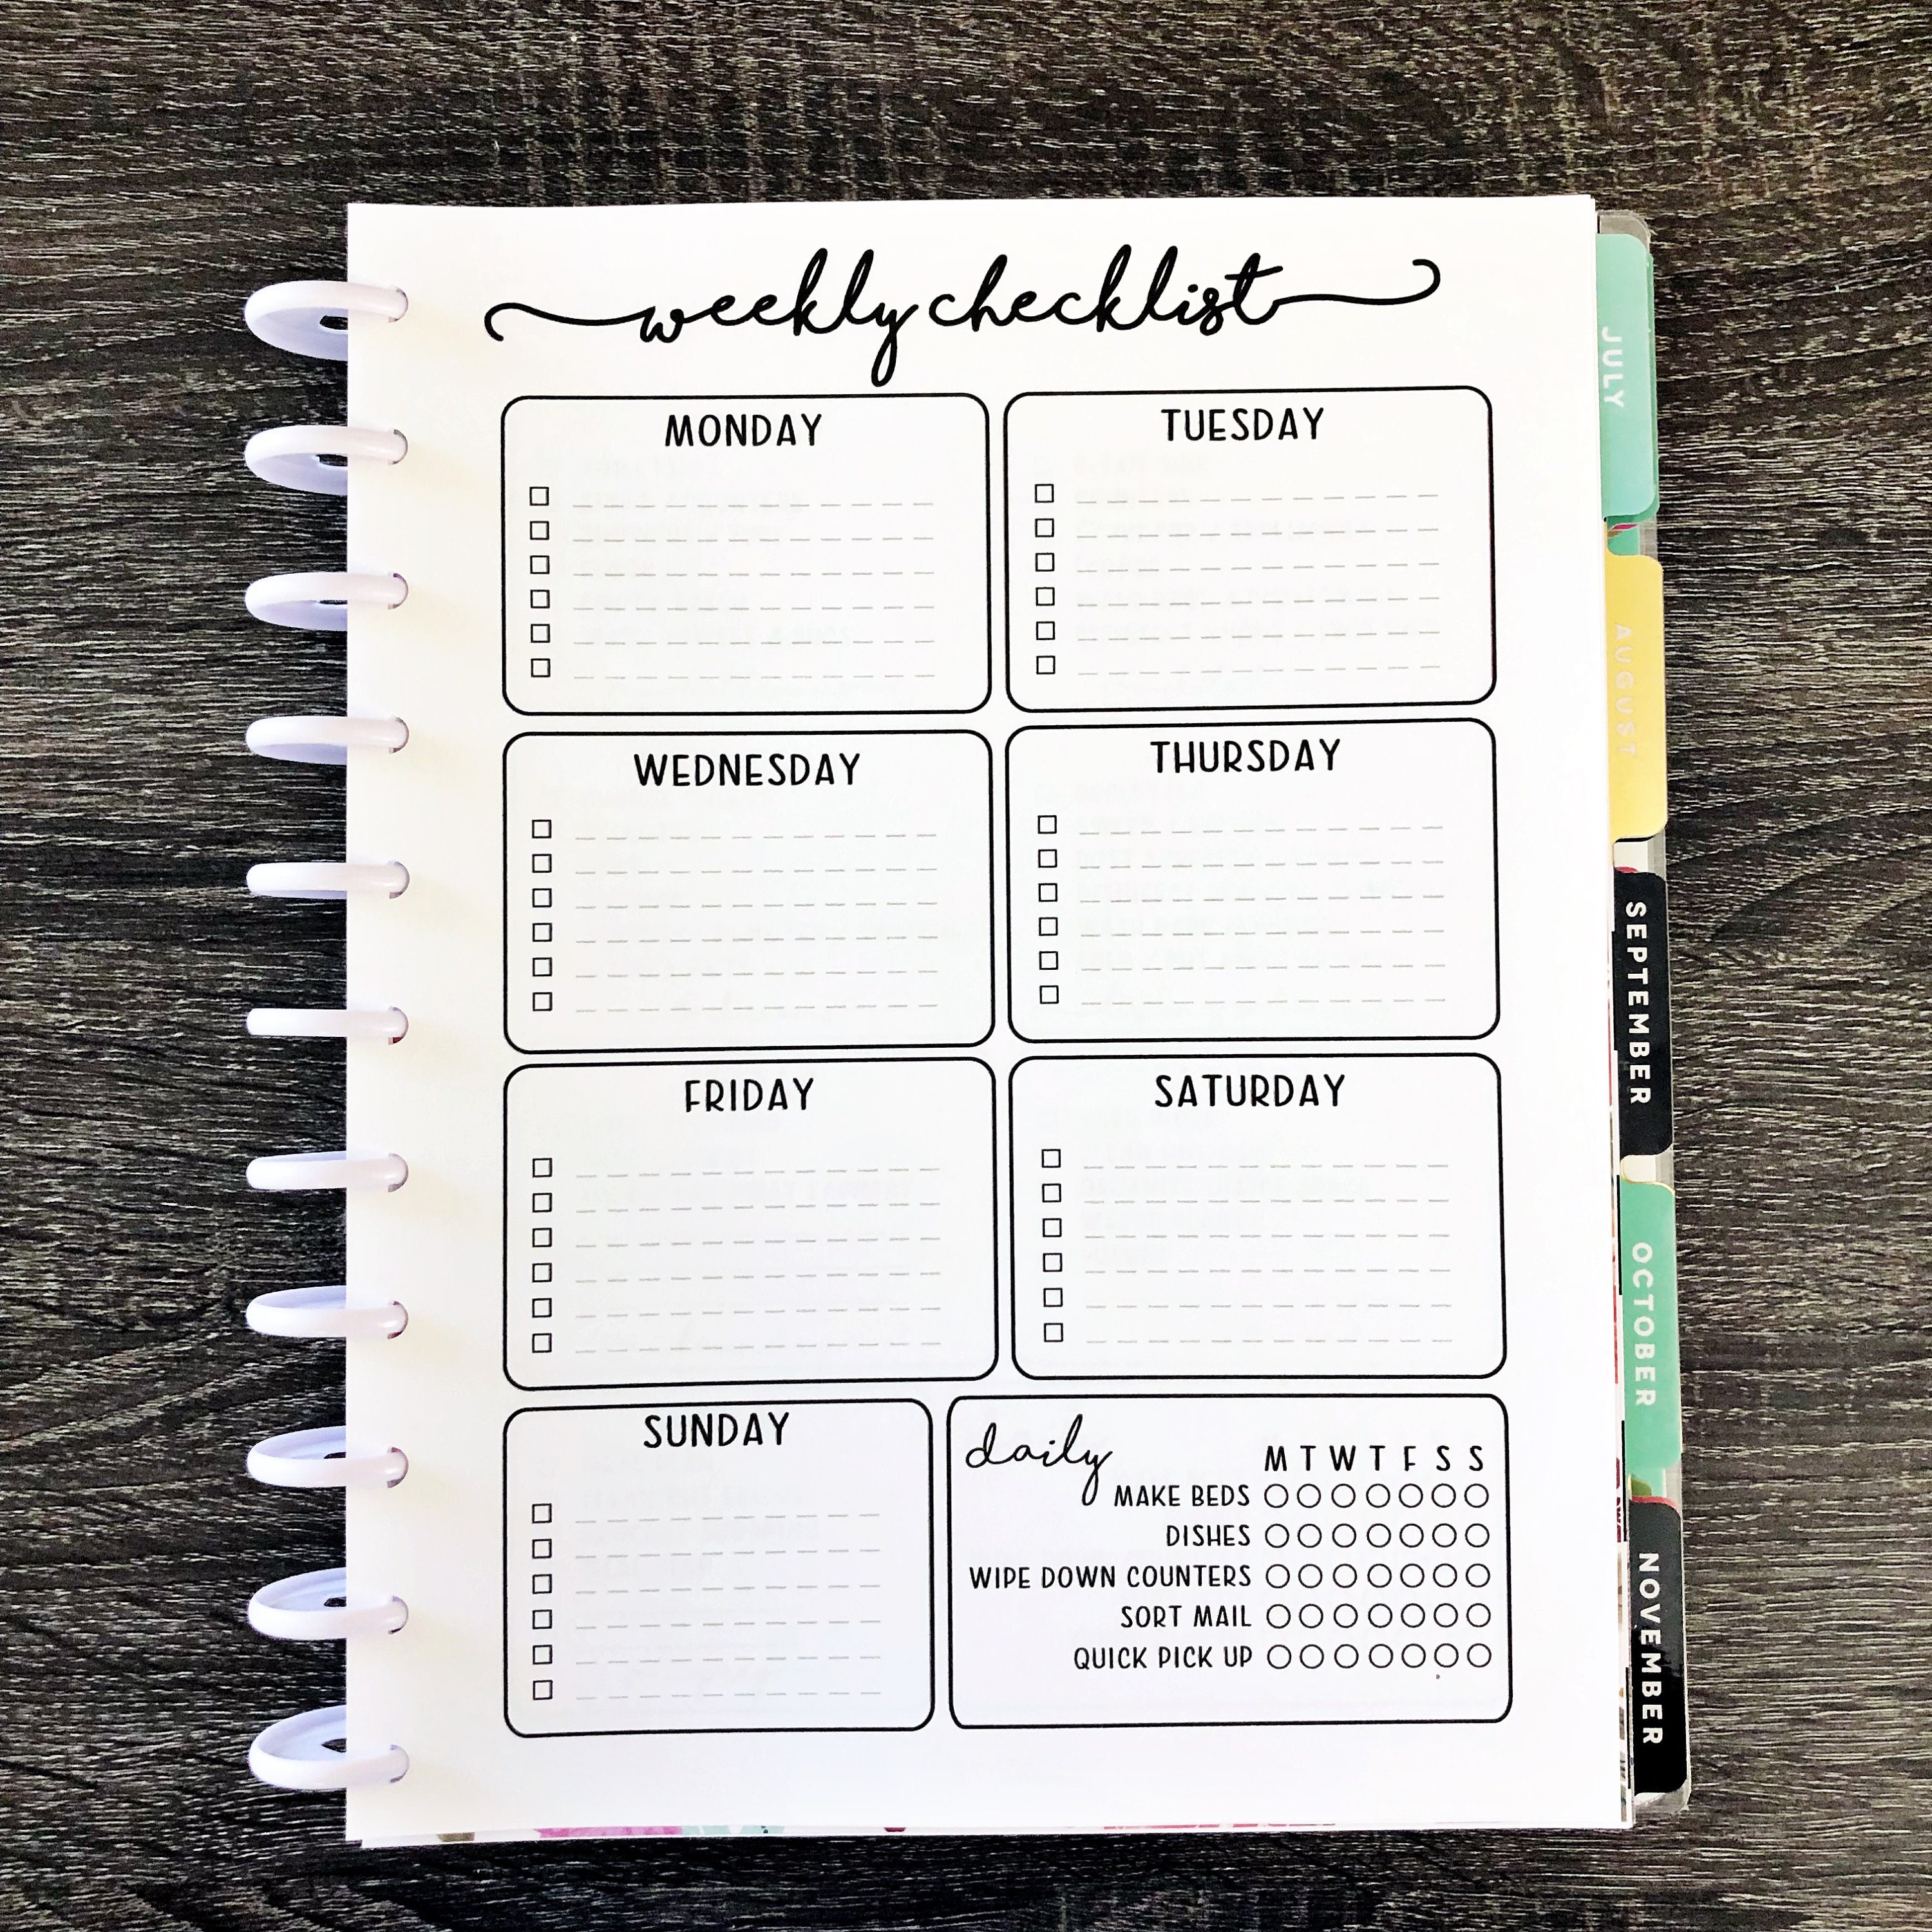 weekly checklist
MONDAY
TUESDAY
WEDNESDAY
THURSDAY
FRIDAY
SATURDAY
SUNDAY
daily
M T W T F S S
MAKE BEDS
DISHES
WIPE DOWN COUNTERS
SORT MAIL
QUICK PICK UP
JULY
AUGUST
SEPTEMBER
OCTOBER
NOVEMBER